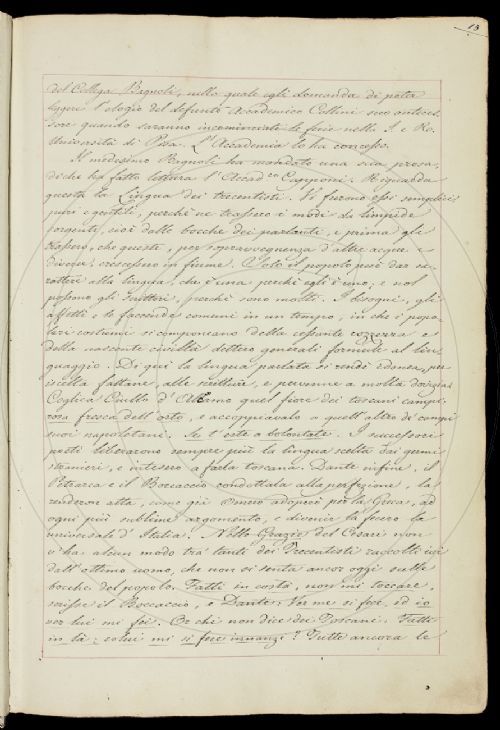 13
del Collega Bagnoli, nella quale egli domanda di poter
leggere l'elogio del defunto Accademico Collini suo anteces-
sore quando saranno incominciate le ferie nella I. e R.
Università di Pisa. L'Accademia lo ha concesso.
Il medesimo Bagnoli ha mandato una sua prosa,
di che ha fatto lettura l'Accad.co Capponi. Riguarda
questa la Lingua dei trecentisti. Vi furono essi semplici
puri e gentili, perchè ne trassero i modi da limpide
sorgenti, cioè dalle bocche dei parlanti, e prima gli
trassero, che queste, per sopravvegnenza d'altre acque e
diverse, crescessero in fiume. Solo il popolo può dar ca-
ratteri alla lingua, che è una perchè egli è uno; e nol
possono gli scrittori, perchè sono molti. I bisogni, gli
affetti e le faccende comuni in un tempo, in che i popo-
lari costumi si componeano della cessante rozzezza e
della nascente civiltà dettero generali formule al lin-
guaggio. Di qui la lingua parlata si rendè idonea, per
iscelta fattane, alle scritture, e pervenne a molta dovizia.
Coglica Ciullo d'Alcamo quel fiore dei toscani campi,
rosa fresca dell'orto, e accoppiavalo a quell'altro di campi
suoi napoletani. Se t'este a bolontate. I successori
poeti liberarono sempre più la lingua scelta dai germi
stranieri, e intesero a farla toscana. Dante infine, il
Petrarca e il Boccaccio condottala alla perfezione, la
renderono atta, come già Omero adoperò per la Greca, ad
ogni più sublime argomento, e divenir la fecero la
universale d'Italia. Nelle Grazie del Cesari non
v'ha alcun modo tra' tanti dei Trecentisti raccolti ivi
dall'ottimo uomo, che non si senta ancor oggi sulle
bocche del popolo. Fatti in costà, non mi toccare,
scrisse il Boccaccio, e Dante: Ver me si fece, ed io
ver lui mi fei. Or che non dice dei Toscani. Fatti
in là: colui mi si fece innanzi? Tutte ancora le